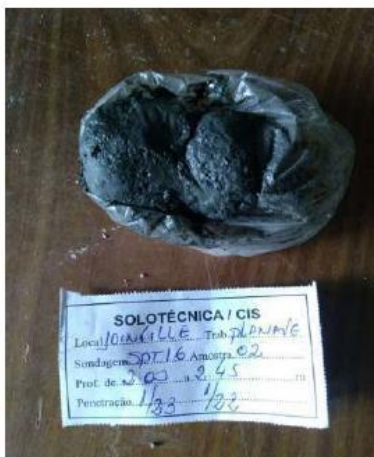 SOLOTÉCNICA / CIS
Local JOINVILLE Trab. PLANAVE
Sondagem SPT16 Amostra 02
Prof. de 2.00 a 2.45 m
Penetração 1/23 1/22